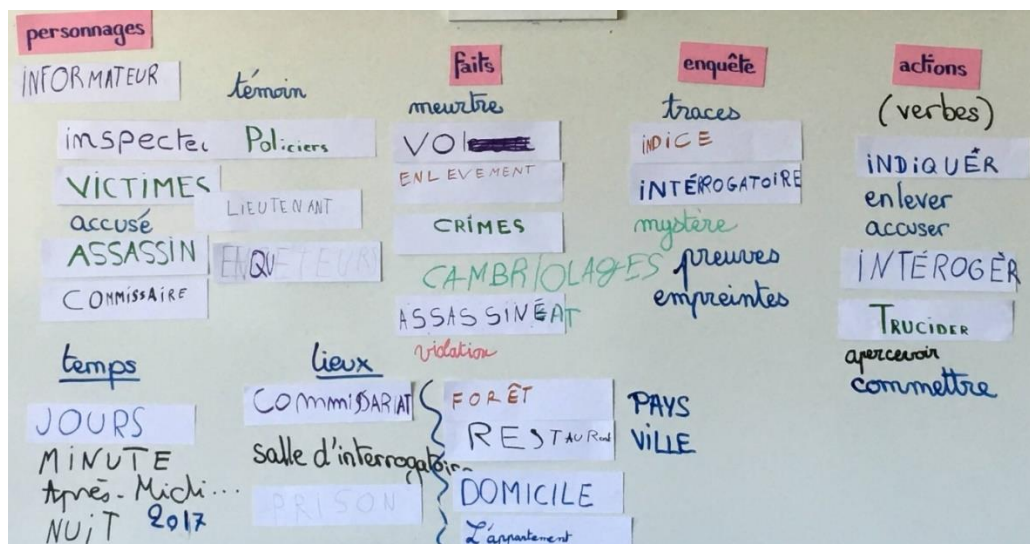 personnages
INFORMATEUR
témoin
inspectec
Policiers
VICTIMES
LIEUTENANT
accusé
ASSASSIN
ENQUETEURS
COMMISSAIRE
faits
meurtre
VOL
ENLEVEMENT
CRIMES
CAMBRIOLAGES
ASSASSINÉAT
violation
enquête
traces
iNDiCE
iNTÉROGATOIRE
mystère
preuves
empreintes
actions
(verbes)
iNDiQUÈR
enlever
accuser
iNTÉROGÈR
TRUCIDER
apercevoir
commettre
temps
JOURS
MiNUTE
Après-Midi...
NUiT 2017
lieux
COMMISARIAT
salle d'interrogatoir
PRISON
FORÊT
RESTAURant
DOMICILE
L'appartement
PAYS
ViLLE